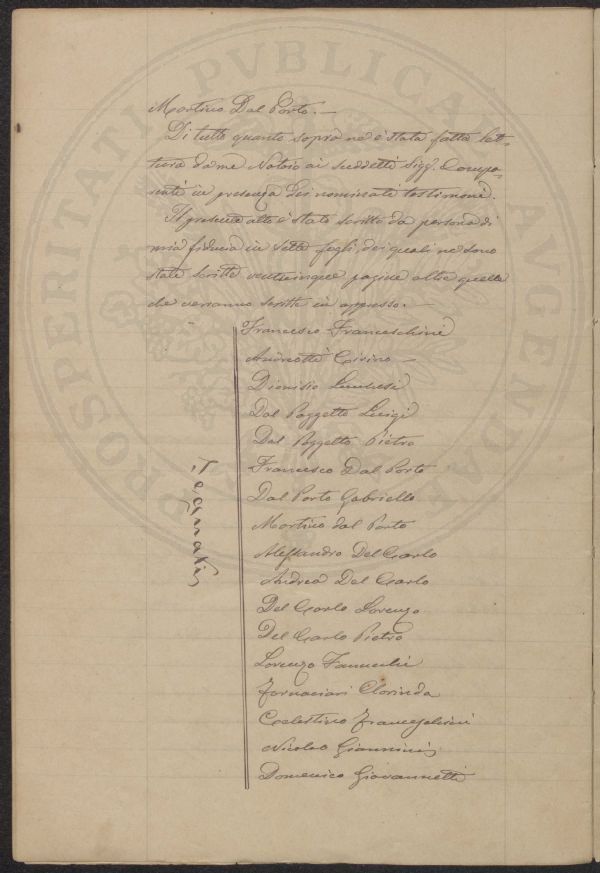 Martino Dal Porto. —
Di tutto quanto sopra ne è stata fatta let-
tura da me Notaio ai suddetti Sigg. Compa-
renti in presenza dei nominati testimoni.
Il presente atto è stato scritto da persona di
mia fiducia in sette fogli, dei quali ne sono
state scritte venticinque pagine oltre quelle
che verranno scritte in appresso. —
Francesco Franceschini
Andreotti Cirino —
Dionisio
Dal Poggetto Luigi
Dal Poggetto Pietro
Francesco Dal Porto
Dal Porto Gabriello
Martino dal Porto
Alessandro Del Carlo
Andrea Del Carlo
Del Carlo Lorenzo
Del Carlo Pietro
Lorenzo
Fornaciari Clorinda
Celestino Franceschini
Nicolao Giannini
Domenico Giovannetti
Segnati
PROSPERITATI PVBLICAE AVGENDAE